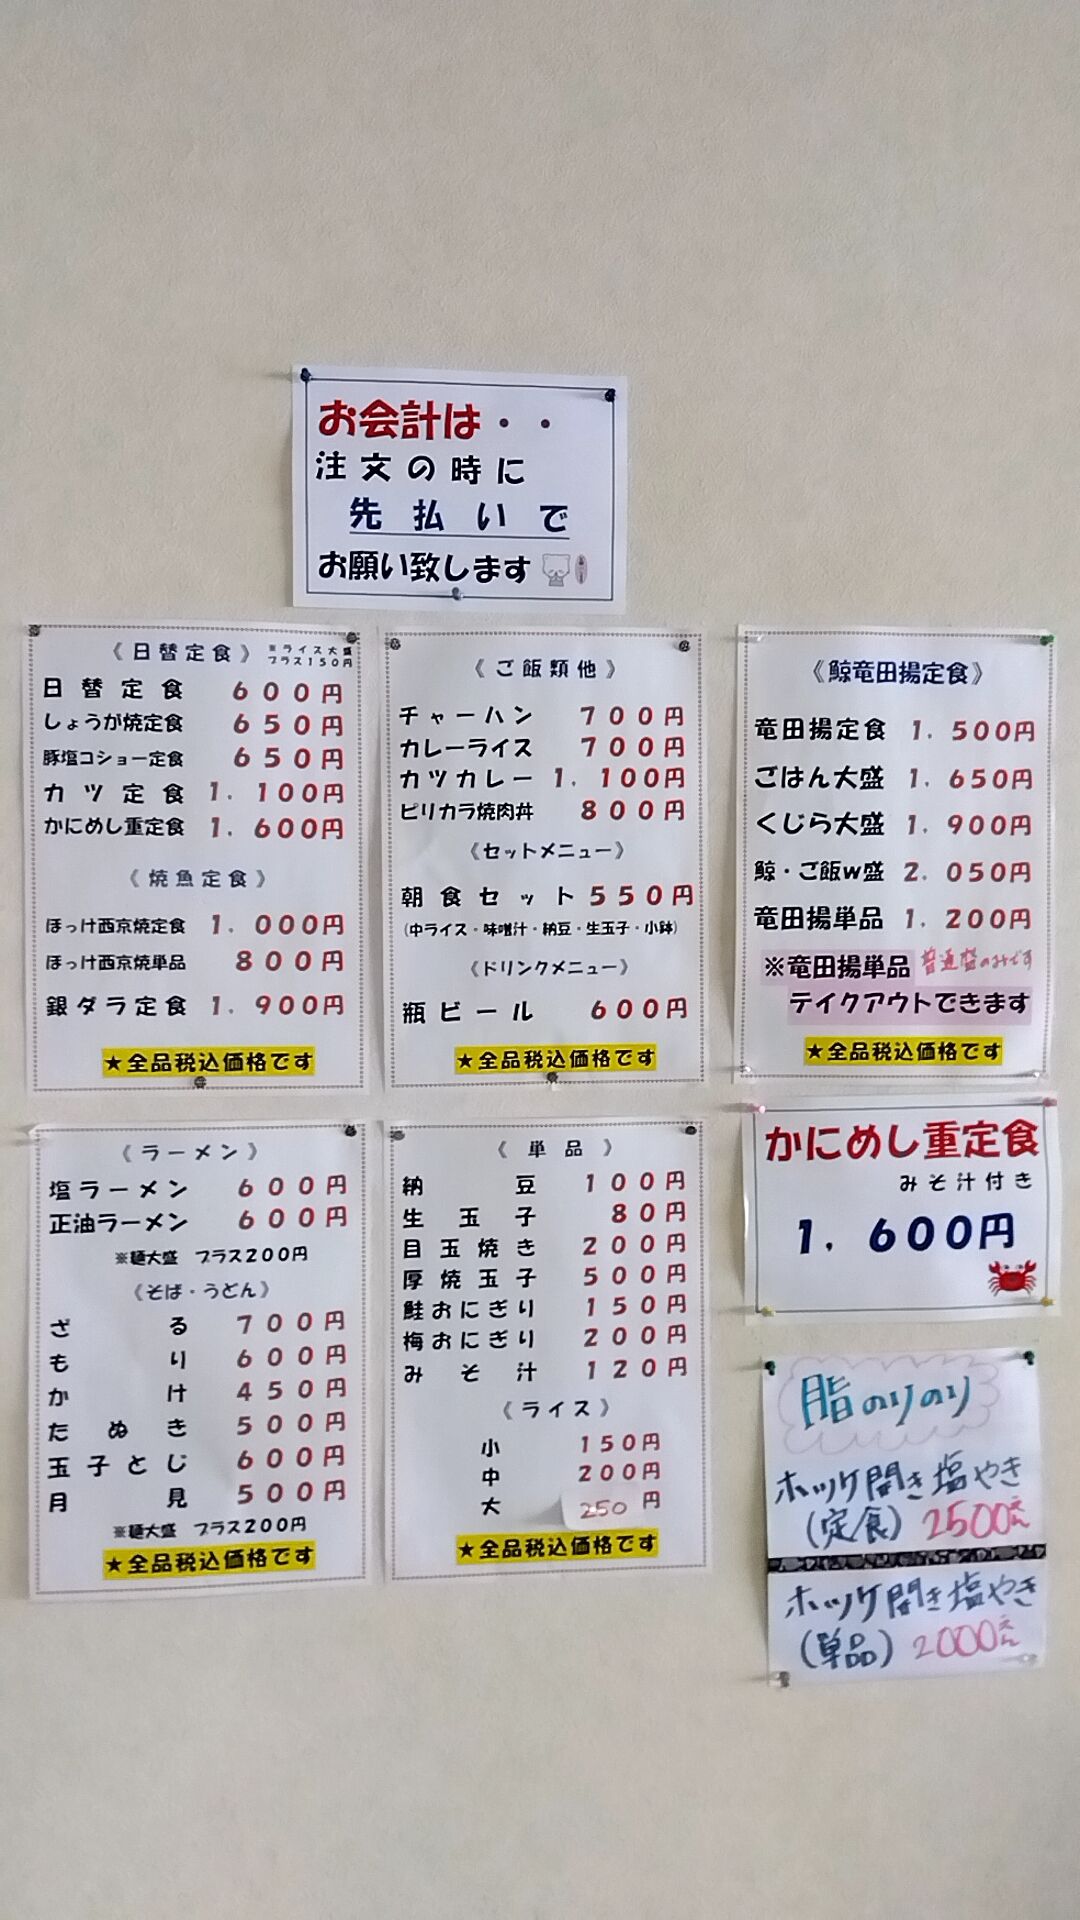 お会計は・・
注文の時に
先払いで
お願い致します
《日替定食》 ※ライス大盛
プラス150円
日替定食 600円
しょうが焼定食 650円
豚塩コショー定食 650円
カツ定食 1,100円
かにめし重定食 1,600円
《焼魚定食》
ほっけ西京焼定食 1,000円
ほっけ西京焼単品 800円
銀ダラ定食 1,900円
★全品税込価格です
《ご飯類他》
チャーハン 700円
カレーライス 700円
カツカレー 1,100円
ピリカラ焼肉丼 800円
《セットメニュー》
朝食セット 550円
(中ライス・味噌汁・納豆・生玉子・小鉢)
《ドリンクメニュー》
瓶ビール 600円
★全品税込価格です
《鯨竜田揚定食》
竜田揚定食 1,500円
ごはん大盛 1,650円
くじら大盛 1,900円
鯨・ご飯w盛 2,050円
竜田揚単品 1,200円
※竜田揚単品 普通盛のみです
テイクアウトできます
★全品税込価格です
《ラーメン》
塩ラーメン 600円
正油ラーメン 600円
※麺大盛 プラス200円
《そば・うどん》
ざる 700円
もり 600円
かけ 450円
たぬき 500円
玉子とじ 600円
月見 500円
※麺大盛 プラス200円
★全品税込価格です
《単品》
納豆 100円
生玉子 80円
目玉焼き 200円
厚焼玉子 500円
鮭おにぎり 150円
梅おにぎり 200円
みそ汁 120円
《ライス》
小 150円
中 200円
大 250円
★全品税込価格です
かにめし重定食
みそ汁付き
1,600円
脂のりのり
ホッケ開き塩やき
(定食) 2500えん
ホッケ開き塩やき
(単品) 2000えん